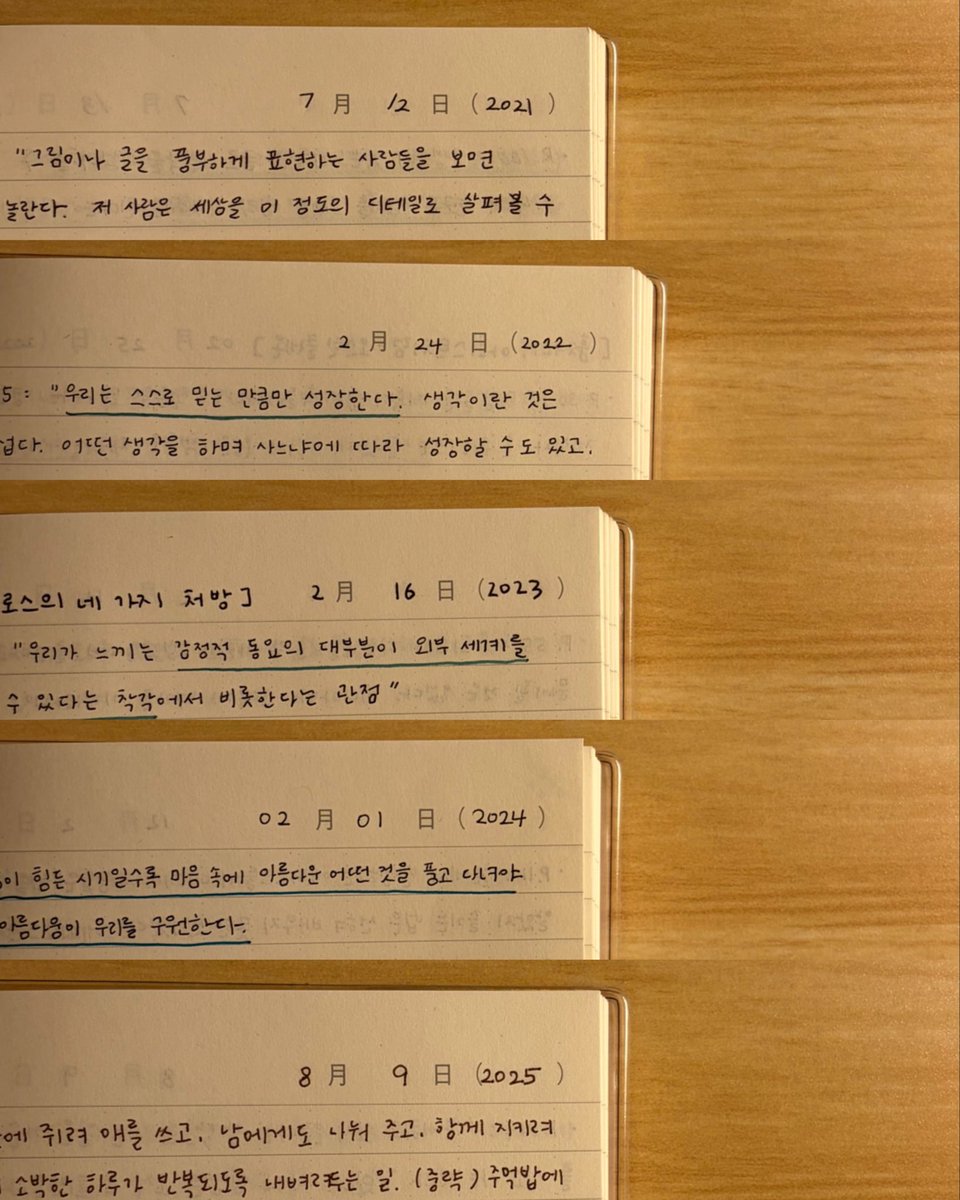 7 月 12 日 (2021)
"그림이나 글을 풍부하게 표현하는 사람들을 보면
놀란다. 저 사람은 세상을 이 정도의 디테일로 살펴볼 수
2 月 24 日 (2022)
5: "우리는 스스로 믿는 만큼만 성장한다. 생각이란 것은
어떤 생각을 하며 사느냐에 따라 성장할 수도 있고,
로스의 네 가지 처방] 2 月 16 日 (2023)
"우리가 느끼는 감정적 동요의 대부분이 외부 세계를
수 있다는 착각에서 비롯한다는 관점"
02 月 01 日 (2024)
힘든 시기일수록 마음 속에 아름다운 어떤 것을 품고 다녀야
아름다움이 우리를 구원한다.
8 月 9 日 (2025)
쥐려 애를 쓰고, 남에게도 나눠 주고, 함께 지키려
소박한 하루가 반복되도록 내버려두는 일. (중략) 주먹밥에